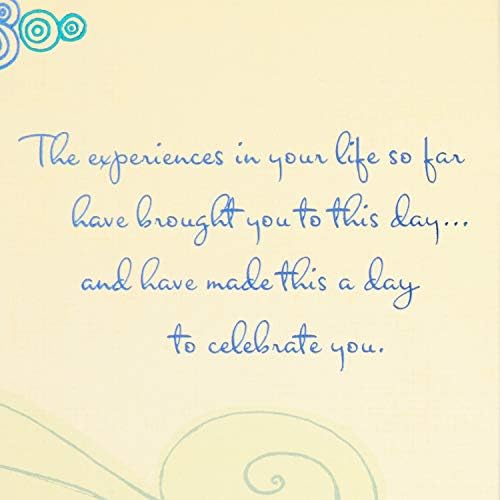 The experiences in your life so far
have brought you to this day...
and have made this a day
to celebrate you.